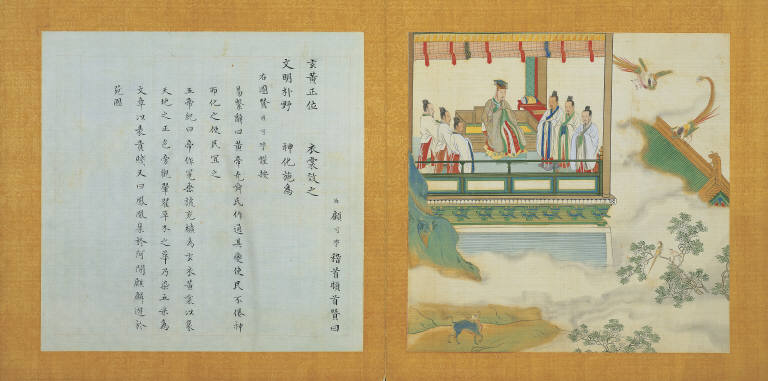 臣顧可學稽首頓首贊曰
玄黃正位 衣裳效之
文明於野 神化施為
右圖贊臣可學謹按
易繫辭曰黃帝堯舜氏作通其變使民不倦神
而化之使民宜之
五帝紀曰帝作冕垂旒充纊為玄衣黃裳以象
天地之正色旁觀翬翟草木之華乃染五采為
文章以表貴賤又曰鳳凰巢於阿閣麒麟遊於
苑囿